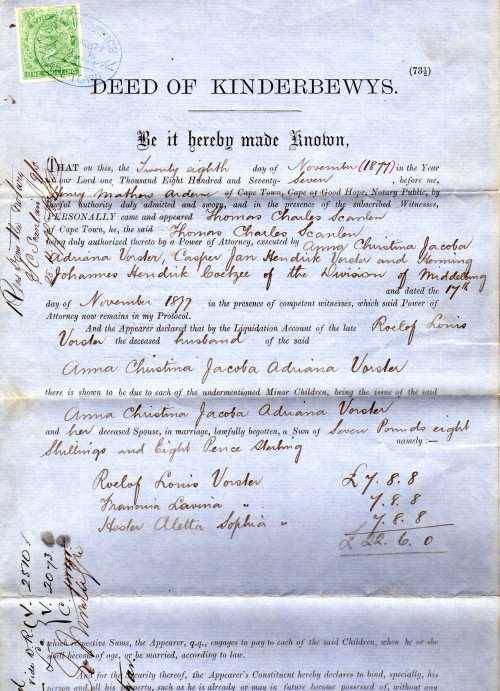 ONE SHILLING
(73½)
DEED OF KINDERBEWYS.
Be it hereby made Known,
THAT on this, the Twenty eighth day of November (1877) in the Year
of our Lord one Thousand Eight Hundred and Seventy-Seven, before me,
Henry Mathew Arderne of Cape Town, Cape of Good Hope, Notary Public, by
lawful authority duly admitted and sworn, and in the presence of the subscribed Witnesses,
PERSONALLY came and appeared Thomas Charles Scanlen
of Cape Town, he, the said Thomas Charles Scanlen
being duly authorized thereto by a Power of Attorney, executed by Anna Christina Jacoba
Adriana Vorster, Casper Jan Hendrik Vorster and Henning
Johannes Hendrik Coetzee of the Division of Middelburg
and dated the 17th
day of November 1877 in the presence of competent witnesses, which said Power of
Attorney now remains in my Protocol.
And the Appearer declared that by the Liquidation Account of the late Roelof Louis
Vorster the deceased husband of the said
Anna Christina Jacoba Adriana Vorster
there is shown to be due to each of the undermentioned Minor Children, being the issue of the said
Anna Christina Jacoba Adriana Vorster
and her deceased Spouse, in marriage, lawfully begotten, a Sum of Seven Pounds eight
Shillings and Eight Pence Sterling namely:—
Roelof Louis Vorster £ 7.8.8
Francina Lavina " 7.8.8
Hester Aletta Sophia " 7.8.8
£ 22.6.0
which respective Sums, the Appearer, q.q., engages to pay to each of the said Children, when he or she
shall become of age, or be married, according to law.
And for the Security thereof, the Appearer's Constituent hereby declares to bind, specially, his
person and all his property, such as he already or may in future become possessed of, without